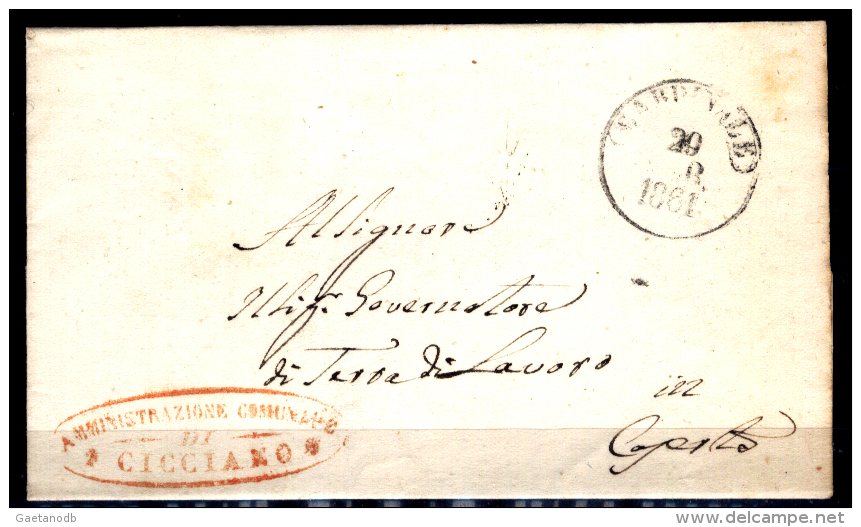 CARDINALE
29
1861
Al Signore
Governatore
di Terra di Lavoro
in
Caserta
AMMINISTRAZIONE COMUNALE
DI
CICCIANO
Gaetanodb
delcampe.net